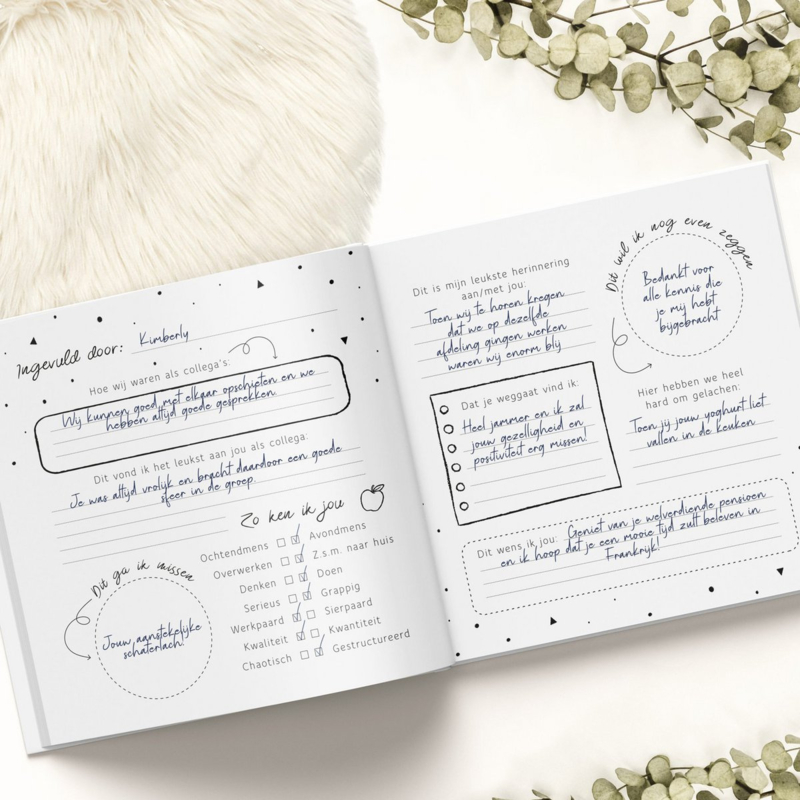 Ingevuld door: Kimberly
Hoe wij waren als collega's:
Wij kunnen goed met elkaar opschieten en we
hebben altijd goede gesprekken
Dit vond ik het leukst aan jou als collega:
Je was altijd vrolijk en bracht daardoor een goede
sfeer in de groep.
Zo ken ik jou
Ochtendmens Avondmens
Overwerken Z.s.m. naar huis
Denken Doen
Serieus Grappig
Werkpaard Sierpaard
Kwaliteit Kwantiteit
Chaotisch Gestructureerd
Dit ga ik missen
Jouw aanstekelijke
schaterlach!
Dit is mijn leukste herinnering
aan/met jou:
Toen wij te horen kregen
dat we op dezelfde
afdeling gingen werken
waren wij enorm blij
Dit wil ik nog even zeggen
Bedankt voor
alle kennis die
je mij hebt
bijgebracht
Dat je weggaat vind ik:
Heel jammer en ik zal
jouw gezelligheid en
positiviteit erg missen!
Hier hebben we heel
hard om gelachen:
Toen jij jouw yoghurt liet
vallen in de keuken
Dit wens ik jou: Geniet van je welverdiende pensioen
en ik hoop dat je een mooie tijd zult beleven in
Frankrijk!